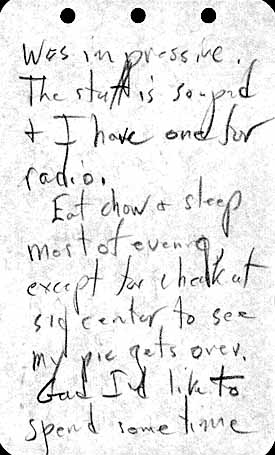 Was impressive.
The stuff is so good
+ I have one for
radio.
Eat chow & sleep
most of evening,
except for check at
sig center to see
my pic gets over.
God I'd like to
spend some time